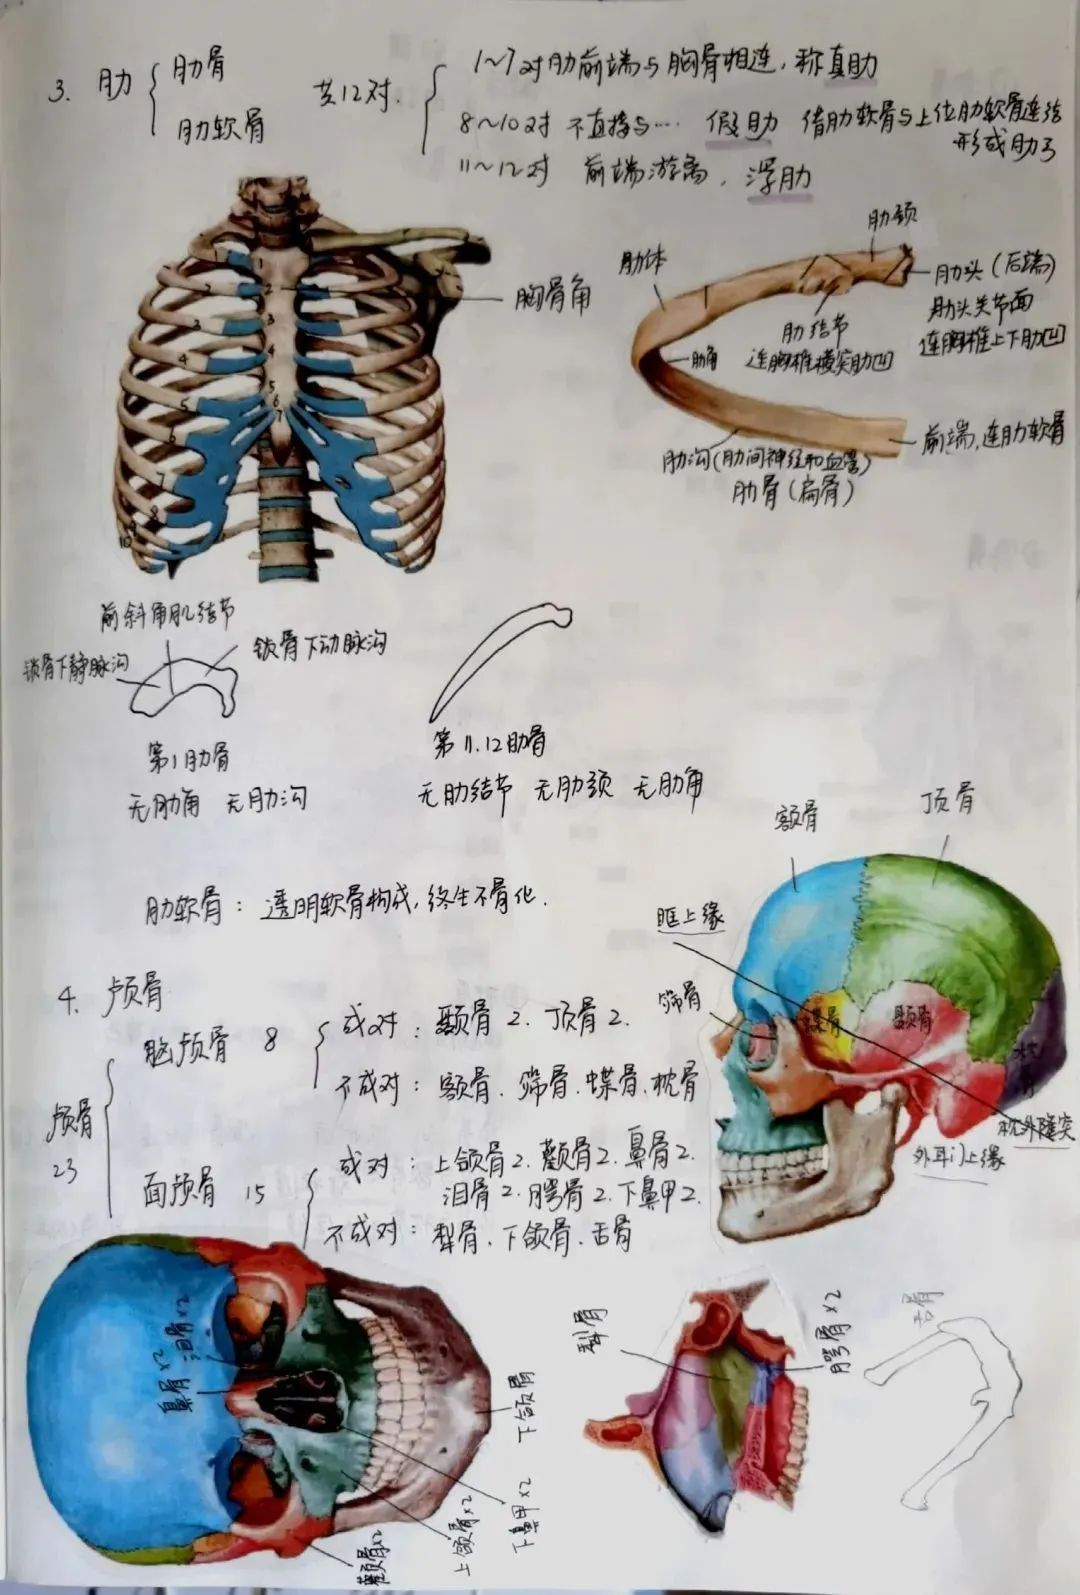 3. 肋 肋骨 肋软骨
共12对.
1~7对肋前端与胸骨相连,称真肋
8~10对 不直接与… 假肋 借肋软骨与上位肋软骨连结
形成肋弓
11~12对 前端游离,浮肋
胸骨角
1 2 3 4 5 6 7 8 9 10
1 2 3 4 5 6 7
肋体
肋颈
肋头(后端)
肋头关节面
连胸椎上下肋凹
肋结节
连胸椎横突肋凹
肋角
前端,连肋软骨
肋沟(肋间神经和血管)
肋骨(扁骨)
前斜角肌结节
锁骨下静脉沟
锁骨下动脉沟
第1肋骨
无肋角 无肋沟
第11.12肋骨
无肋结节 无肋颈 无肋角
肋软骨:透明软骨构成,终生不骨化.
4. 颅骨
颅骨
23
脑颅骨 8
成对:颞骨2.顶骨2.
不成对:额骨.筛骨.蝶骨、枕骨
面颅骨 15
成对:上颌骨2.颧骨2.鼻骨2.
泪骨2.腭骨2.下鼻甲2.
不成对:犁骨.下颌骨.舌骨
额骨
顶骨
眶上缘
筛骨
蝶骨
颞骨
枕骨
枕外隆突
外耳门上缘
鼻骨×2
泪骨×2
下颌骨
下鼻甲×2
上颌骨×2
颧骨×2
犁骨
腭骨×2
舌骨